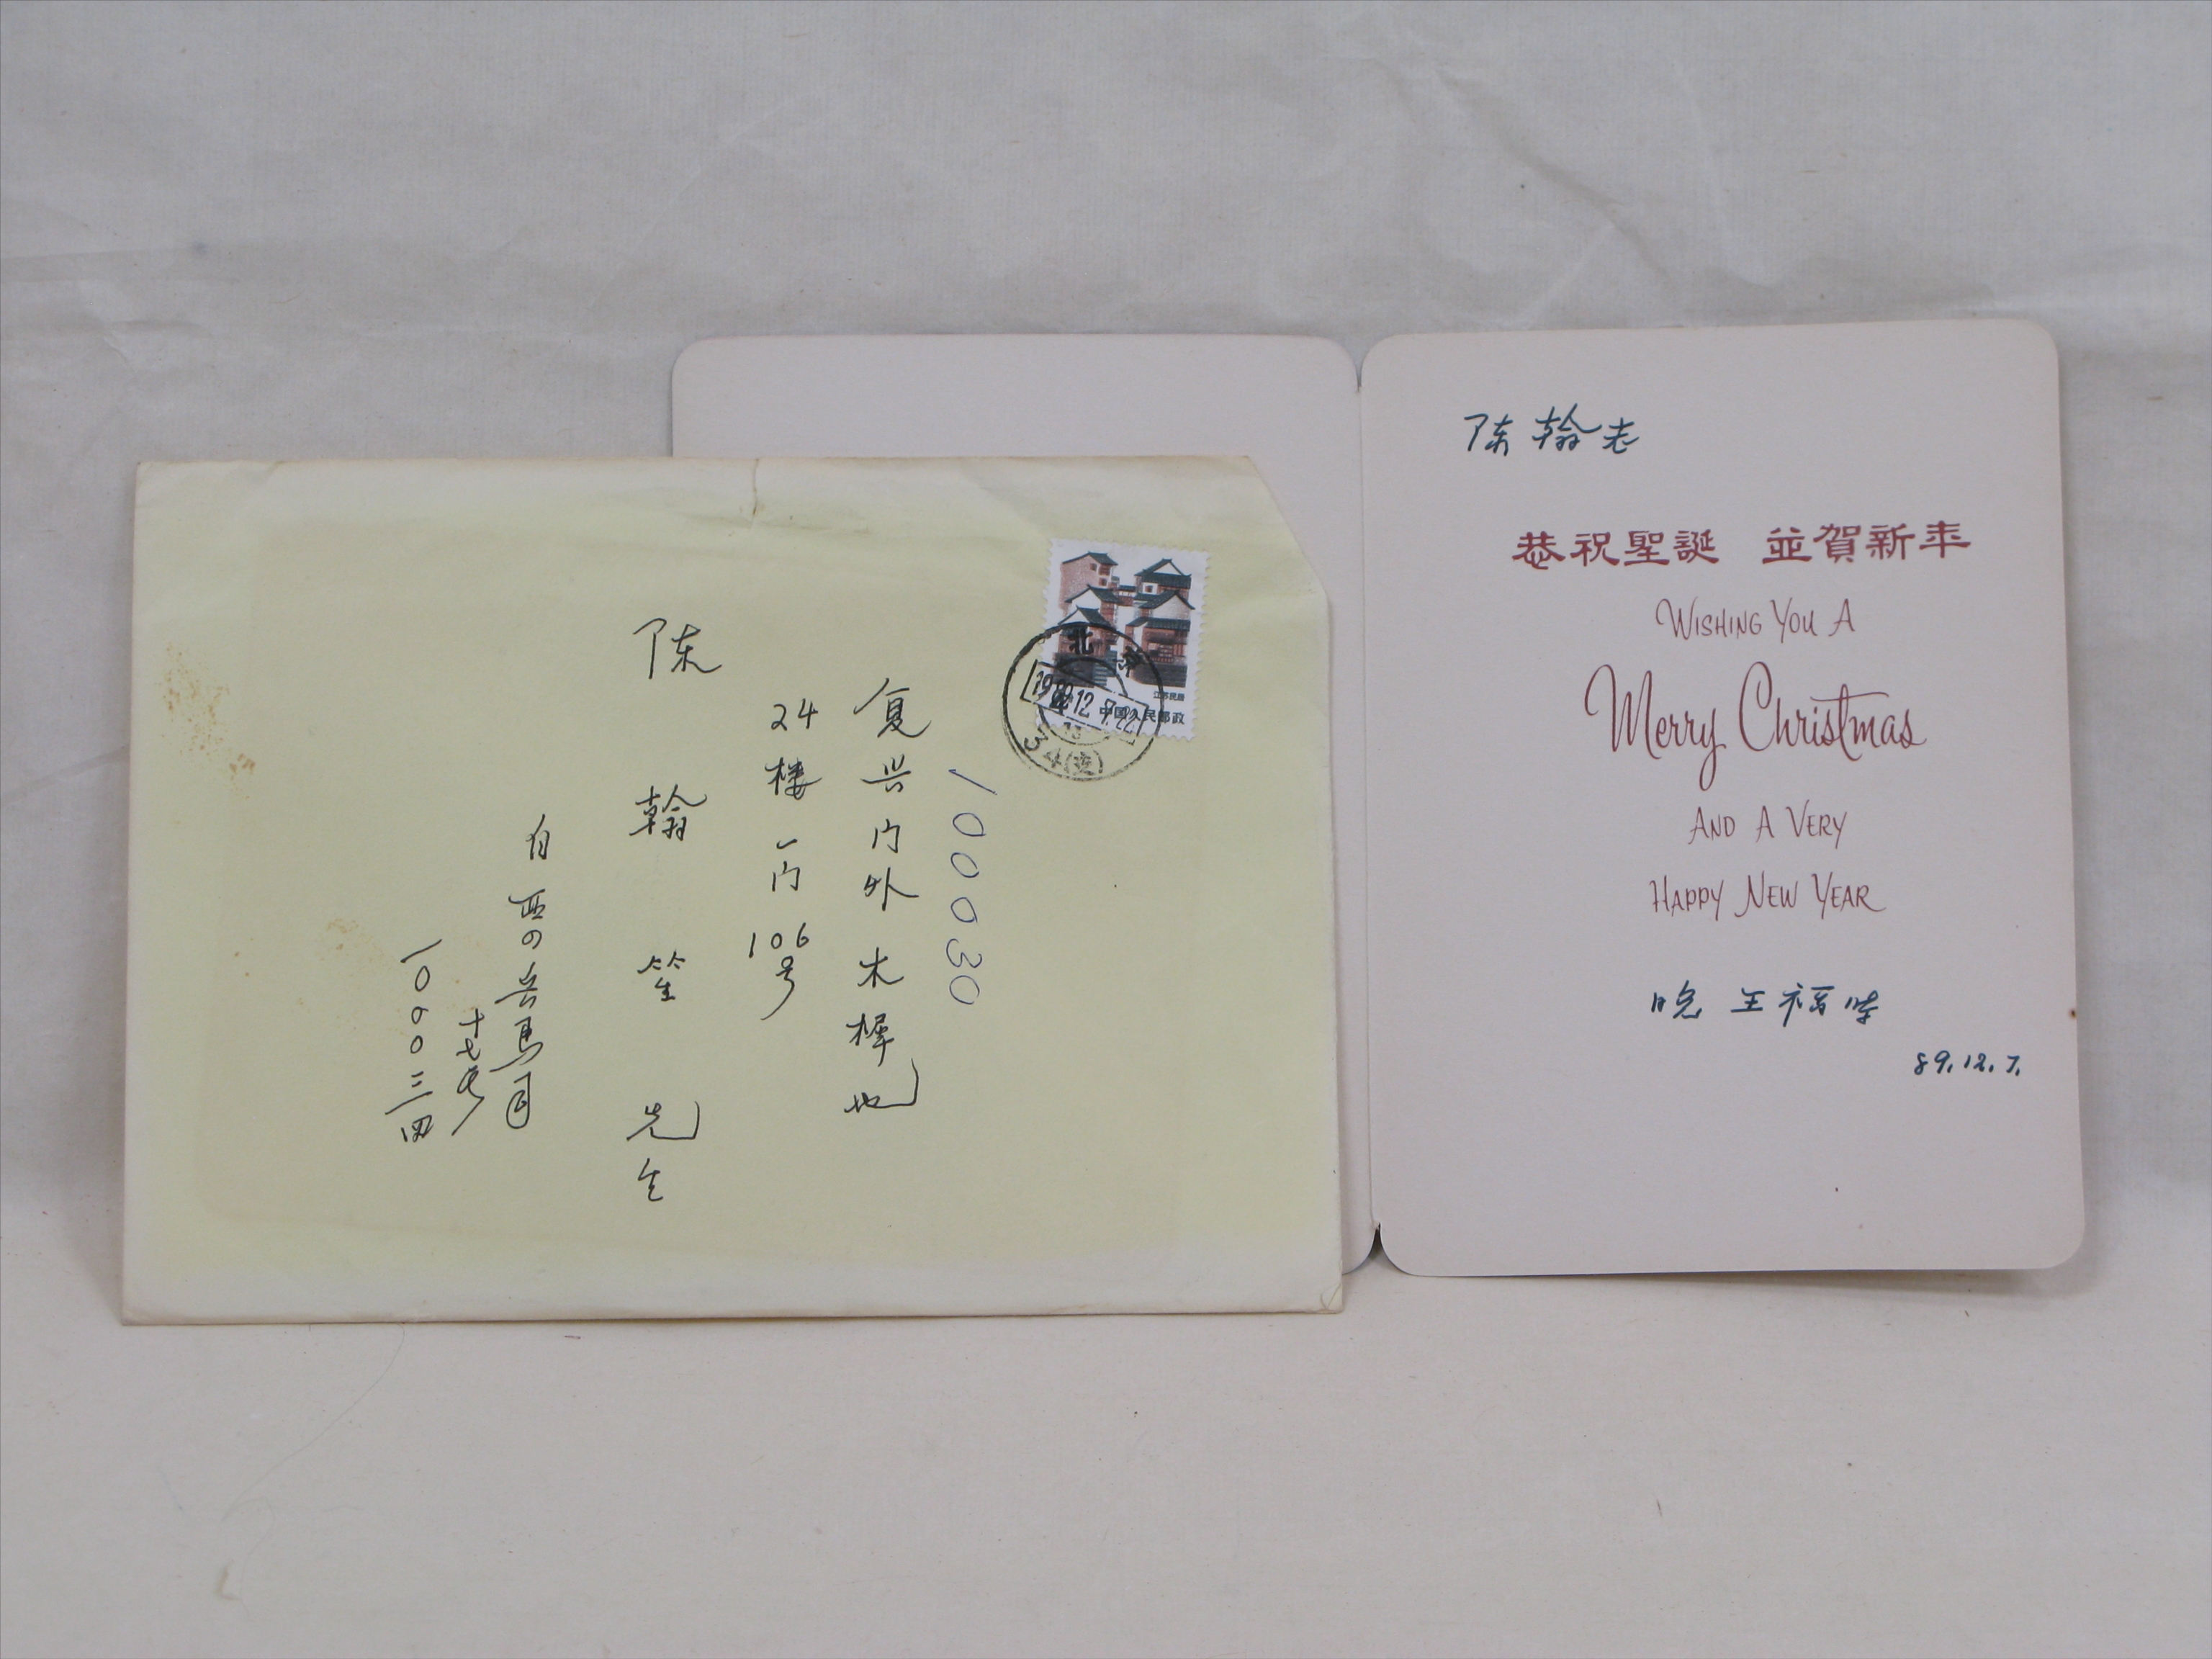 100030
复兴门外木樨地
24楼一门106号
陈翰笙先生
自西四兵马司
十七号
一〇〇〇三四
江苏民居
中国人民邮政
北京
1989.12.7.22
34(支)
陈翰老
恭祝聖誕 並賀新年
WISHING YOU A
Merry Christmas
AND A VERY
HAPPY NEW YEAR
晚 王福時
89.12.7.